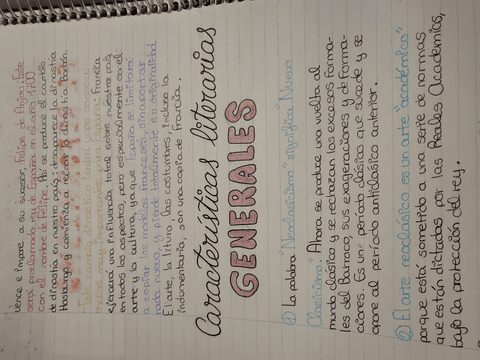 vence e impone a su sucesor, Felipe de Anjou. Este
será proclamado rey de España en el año 1700
con el nombre de Felipe V. Así se produce el cambio
de dinastía en nuestro país, desaparece la dinastía
Habsburgo y comienza a reinar la dinastía Borbón.
Este cambio dinástico
Francia
ejercerá una influencia total sobre nuestro país
en todos los aspectos, pero especialmente en el
arte y la cultura, ya que España se limitará
a copiar los modelos franceses, sin aportar
nada nuevo, y pierde totalmente su originalidad.
El arte, la cultura, las costumbres, incluso la
indumentaria, son una copia de Francia.
Características literarias
GENERALES
① La palabra "Neoclasicismo" significa "Nuevo
Clasicismo". Ahora se produce una vuelta al
mundo clásico y se rechazan los excesos forma-
les del Barroco, sus exageraciones y deforma-
ciones. Es un período clásico que sucede y se
opone al período anticlásico anterior.
② El arte neoclásico es un "arte académico"
porque está sometido a una serie de normas
que están dictadas por las Reales Academias,
bajo la protección del rey.